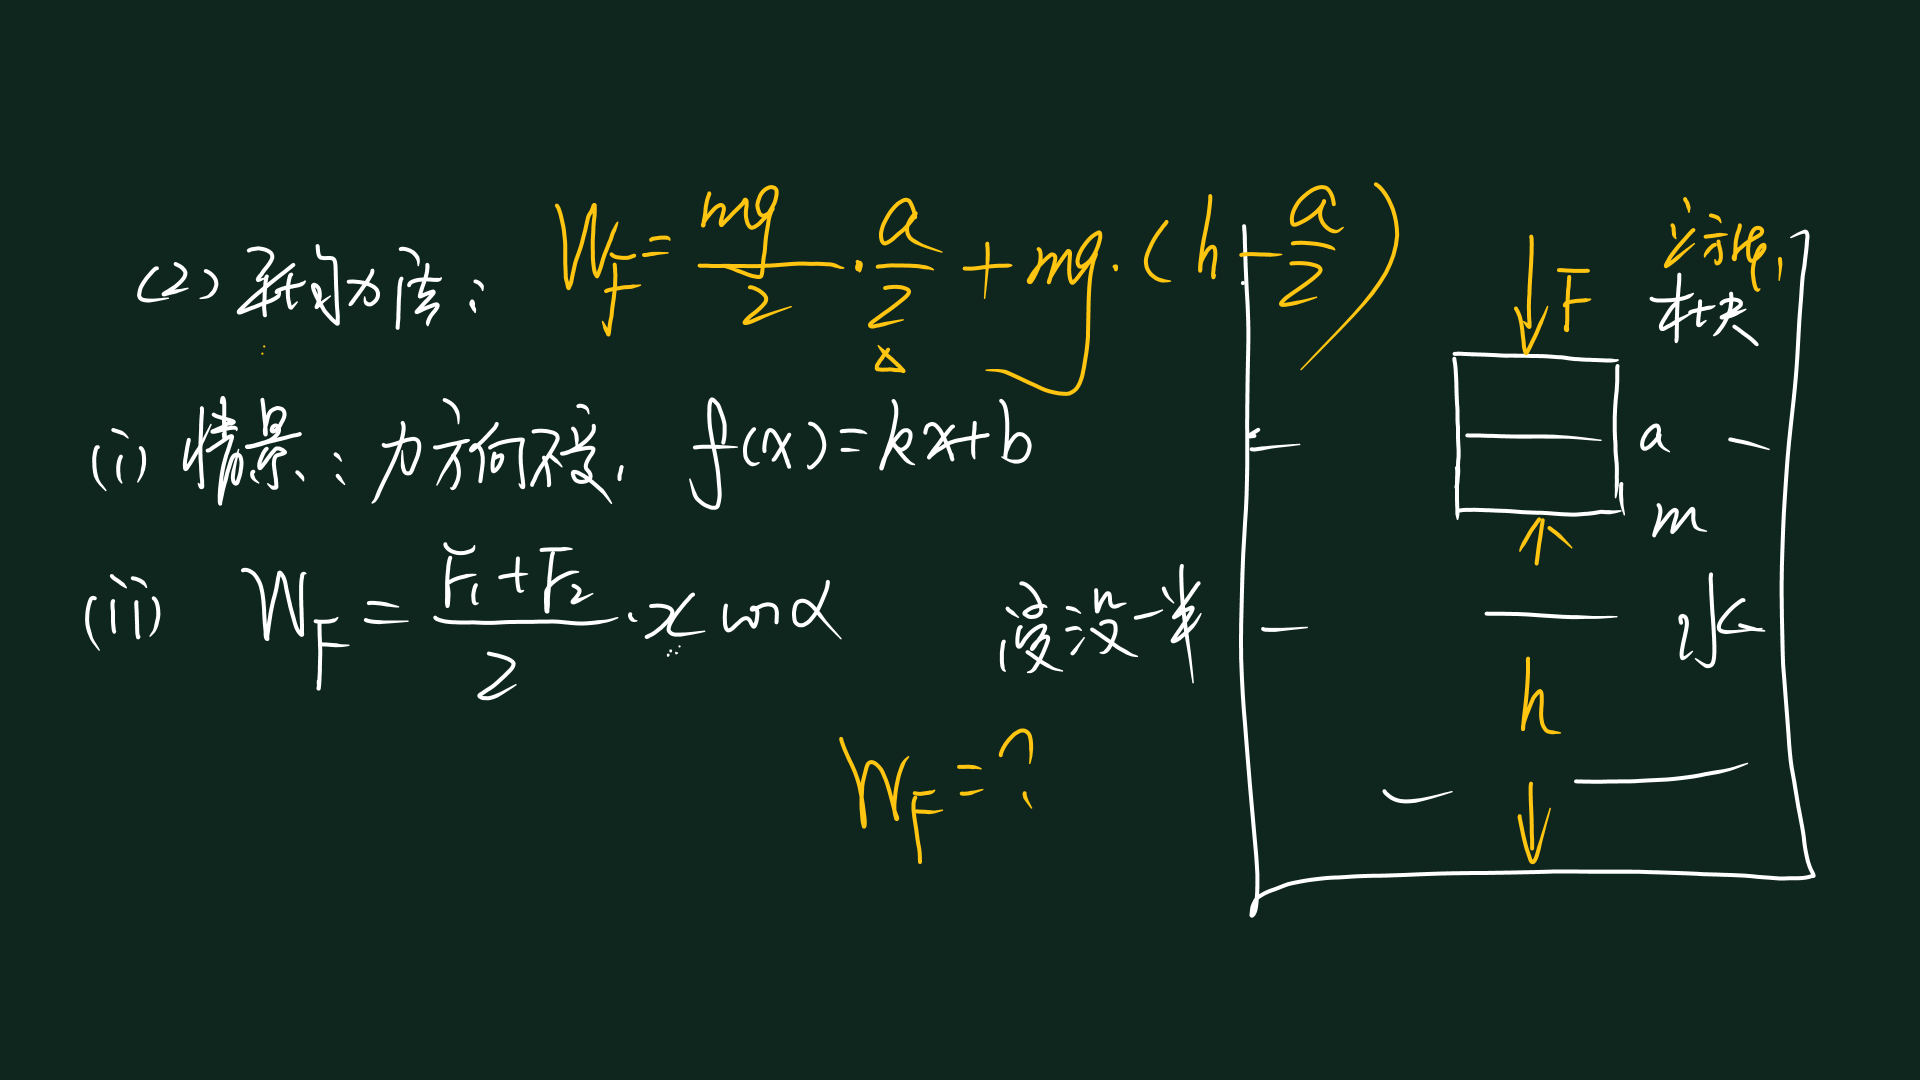 (2) 平均力法：
W_F = mg/2 · a/2 + mg · (h - a/2)
(i) 情景：力方向不变, f(x) = kx + b
(ii) W_F = (F₁ + F₂)/2 · x cosα
浸没一半
W_F = ?
F
立方体,
木块
a
m
水
h